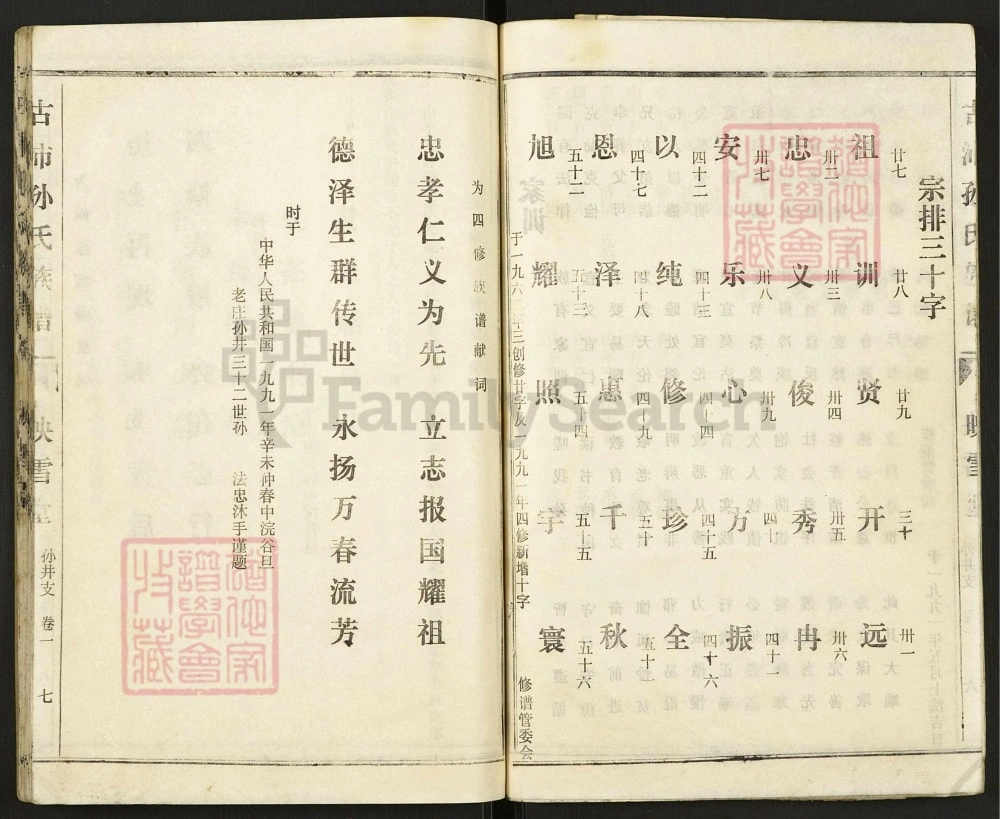 宗排三十字
廿七 廿八 廿九 三十 卅一
祖训贤开远
卅二 卅三 卅四 卅五 卅六
忠义俊秀冉
卅七 卅八 卅九 四十 四十一
安乐心万振
四十二 四十三 四十四 四十五 四十六
以纯修珍全
四十七 四十八 四十九 五十 五十一
恩泽惠千秋
五十二 五十三 五十四 五十五 五十六
旭耀照宇寰
于一九六 年三创修廿字及一九九一年四修新增十字 修谱管委会
为四修族谱献词
忠孝仁义为先 立志报国耀祖
德泽生群传世 永扬万春流芳
时于
中华人民共和国一九九一年辛未仲春中浣谷旦
老庄孙井三十二世孙 法忠沐手谨题
古沛孙氏族谱 映雪堂 孙井支 卷一 七
FamilySearch